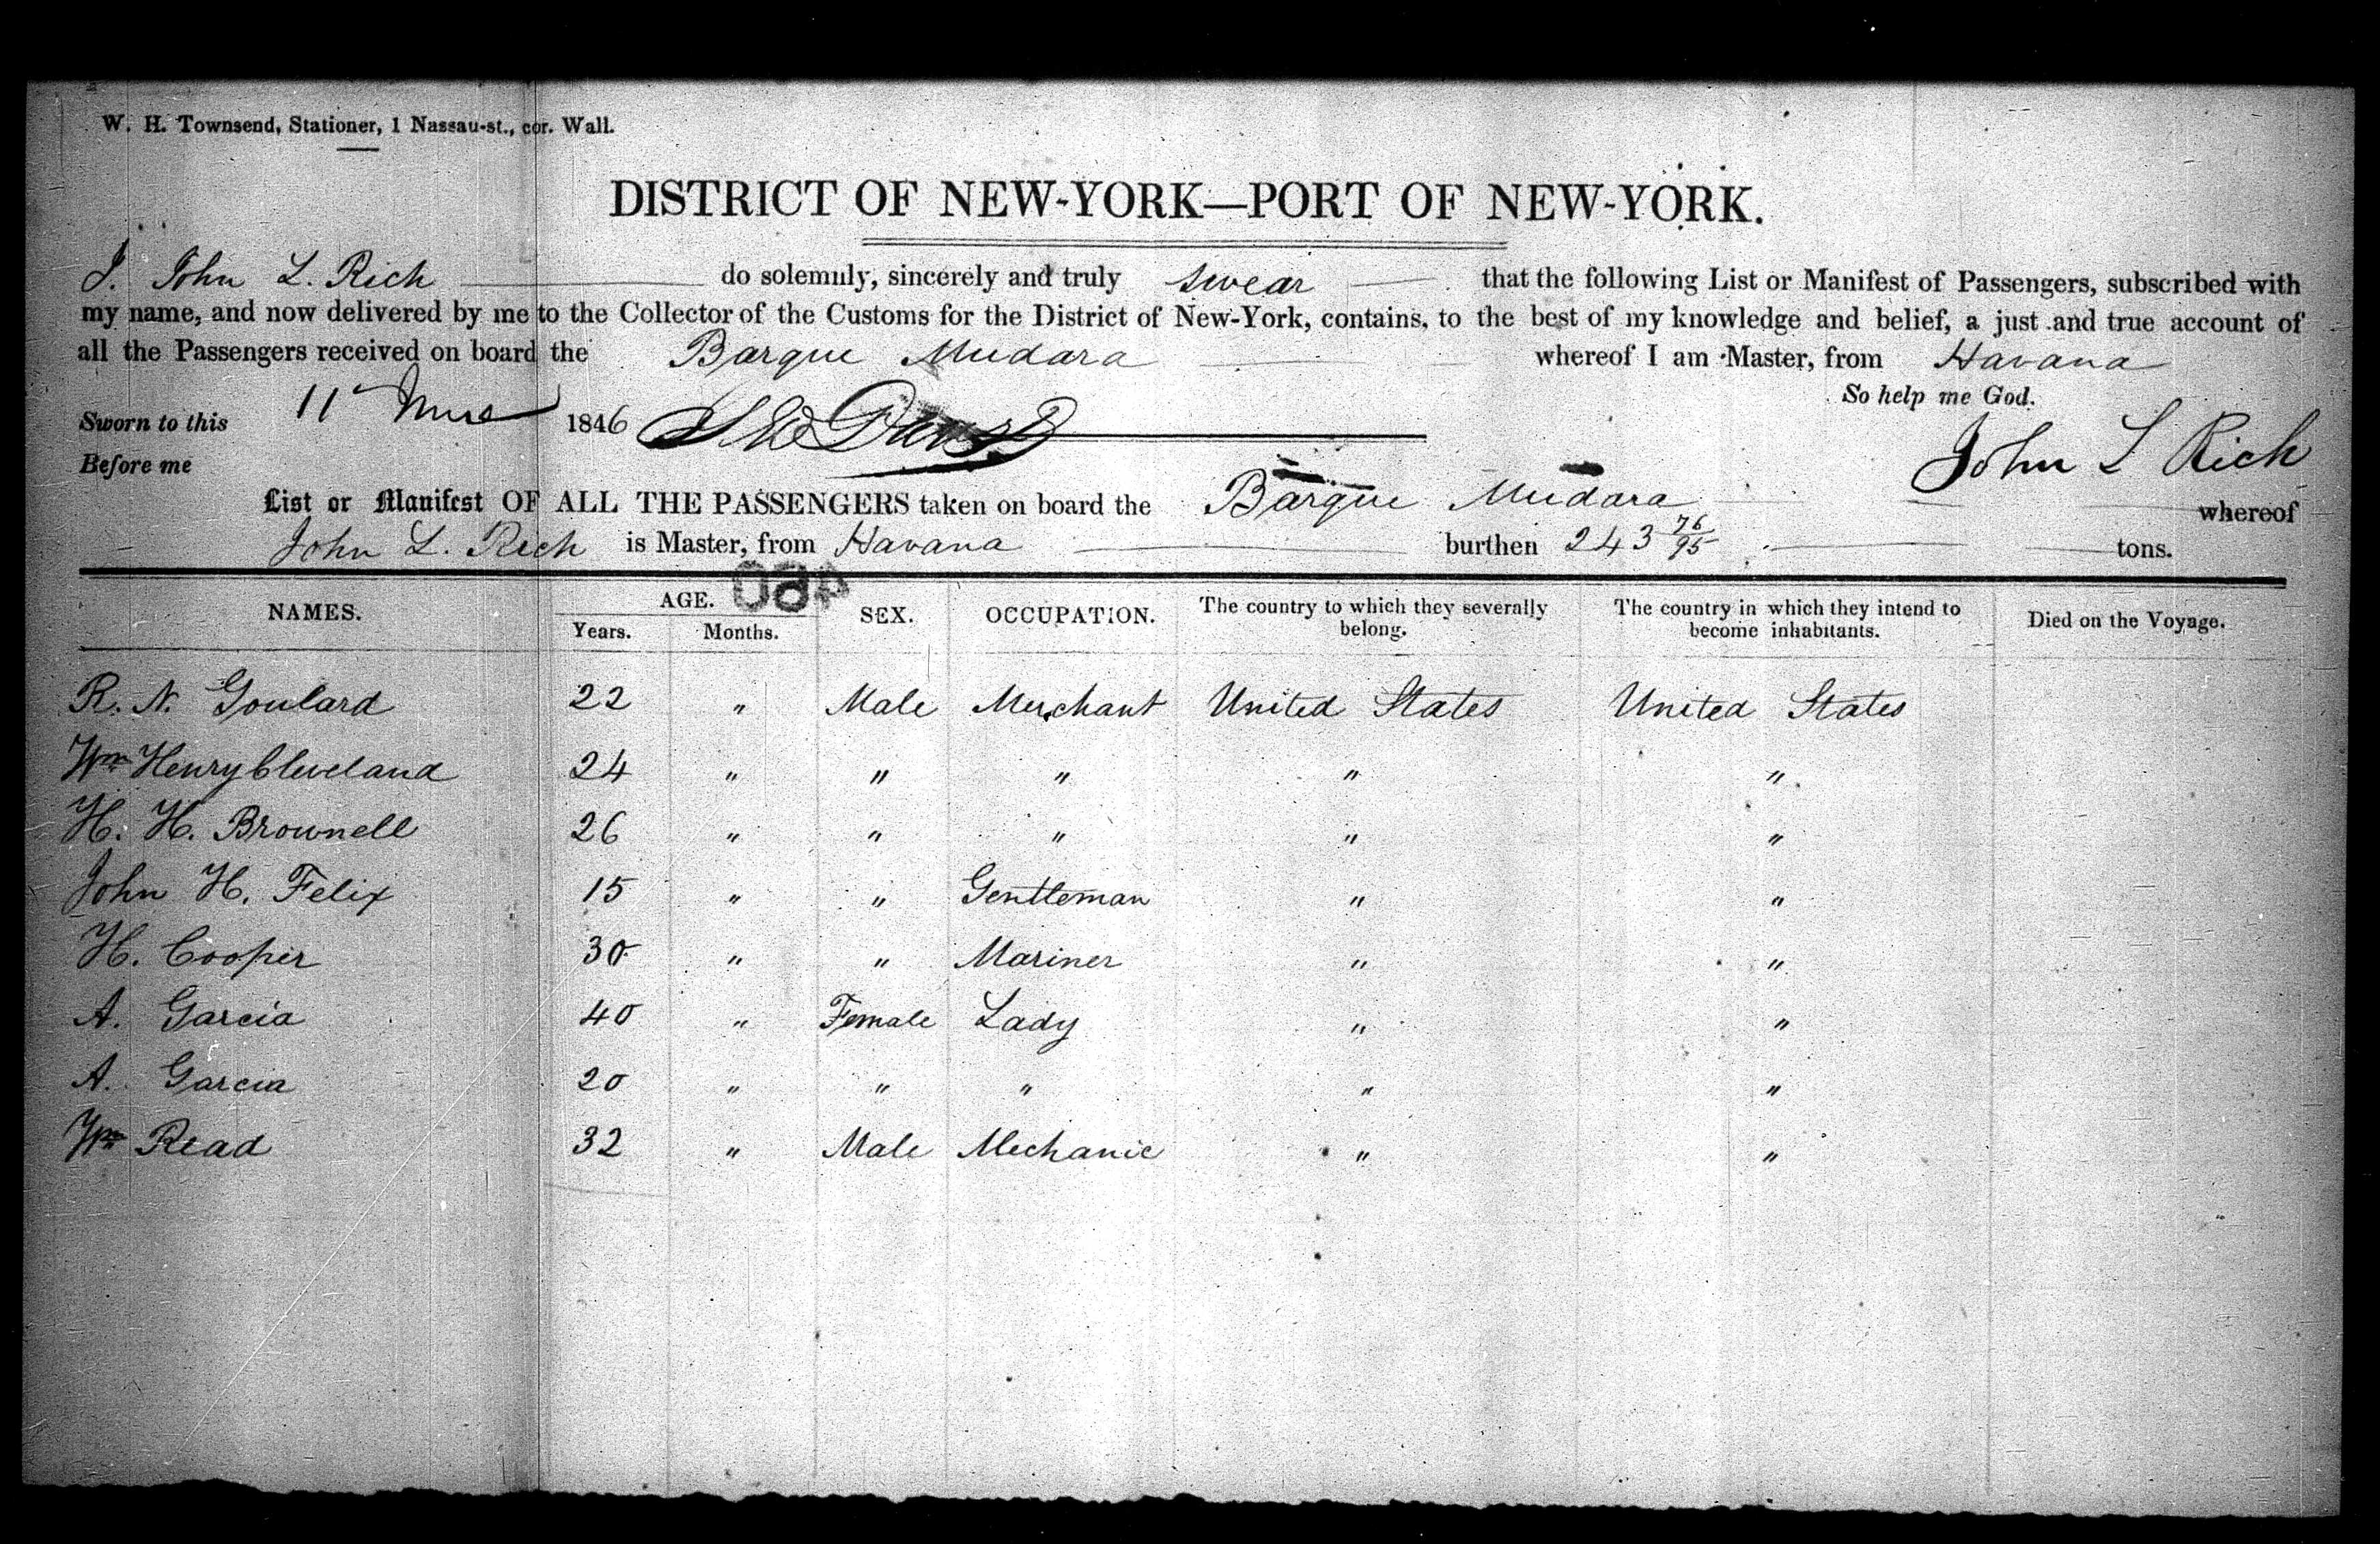 W. H. Townsend, Stationer, 1 Nassau-st., cor. Wall.
DISTRICT OF NEW-YORK—PORT OF NEW-YORK.
I. John L. Rich do solemnly, sincerely and truly swear that the following List or Manifest of Passengers, subscribed with
my name, and now delivered by me to the Collector of the Customs for the District of New-York, contains, to the best of my knowledge and belief, a just and true account of
all the Passengers received on board the Barque Mudara whereof I am Master, from Havana
So help me God.
Sworn to this 11 1846
John L Rich
Before me
List or Manifest OF ALL THE PASSENGERS taken on board the Barque Mudara whereof
John L. Rich is Master, from Havana burthen 243 76/95 tons.
460
NAMES. AGE. SEX. OCCUPATION. The country to which they severally belong. The country in which they intend to become inhabitants. Died on the Voyage.
Years. Months.
R. N. Goulard 22 " Male Merchant United States United States
Wm Henry Cleveland 24 " " " " "
H. H. Brownell 26 " " " " "
John H. Felix 15 " " Gentleman " "
H. Cooper 30 " " Mariner " "
A. Garcia 40 " Female Lady " "
A. Garcia 20 " " " " "
Wm Read 32 " Male Mechanic " "